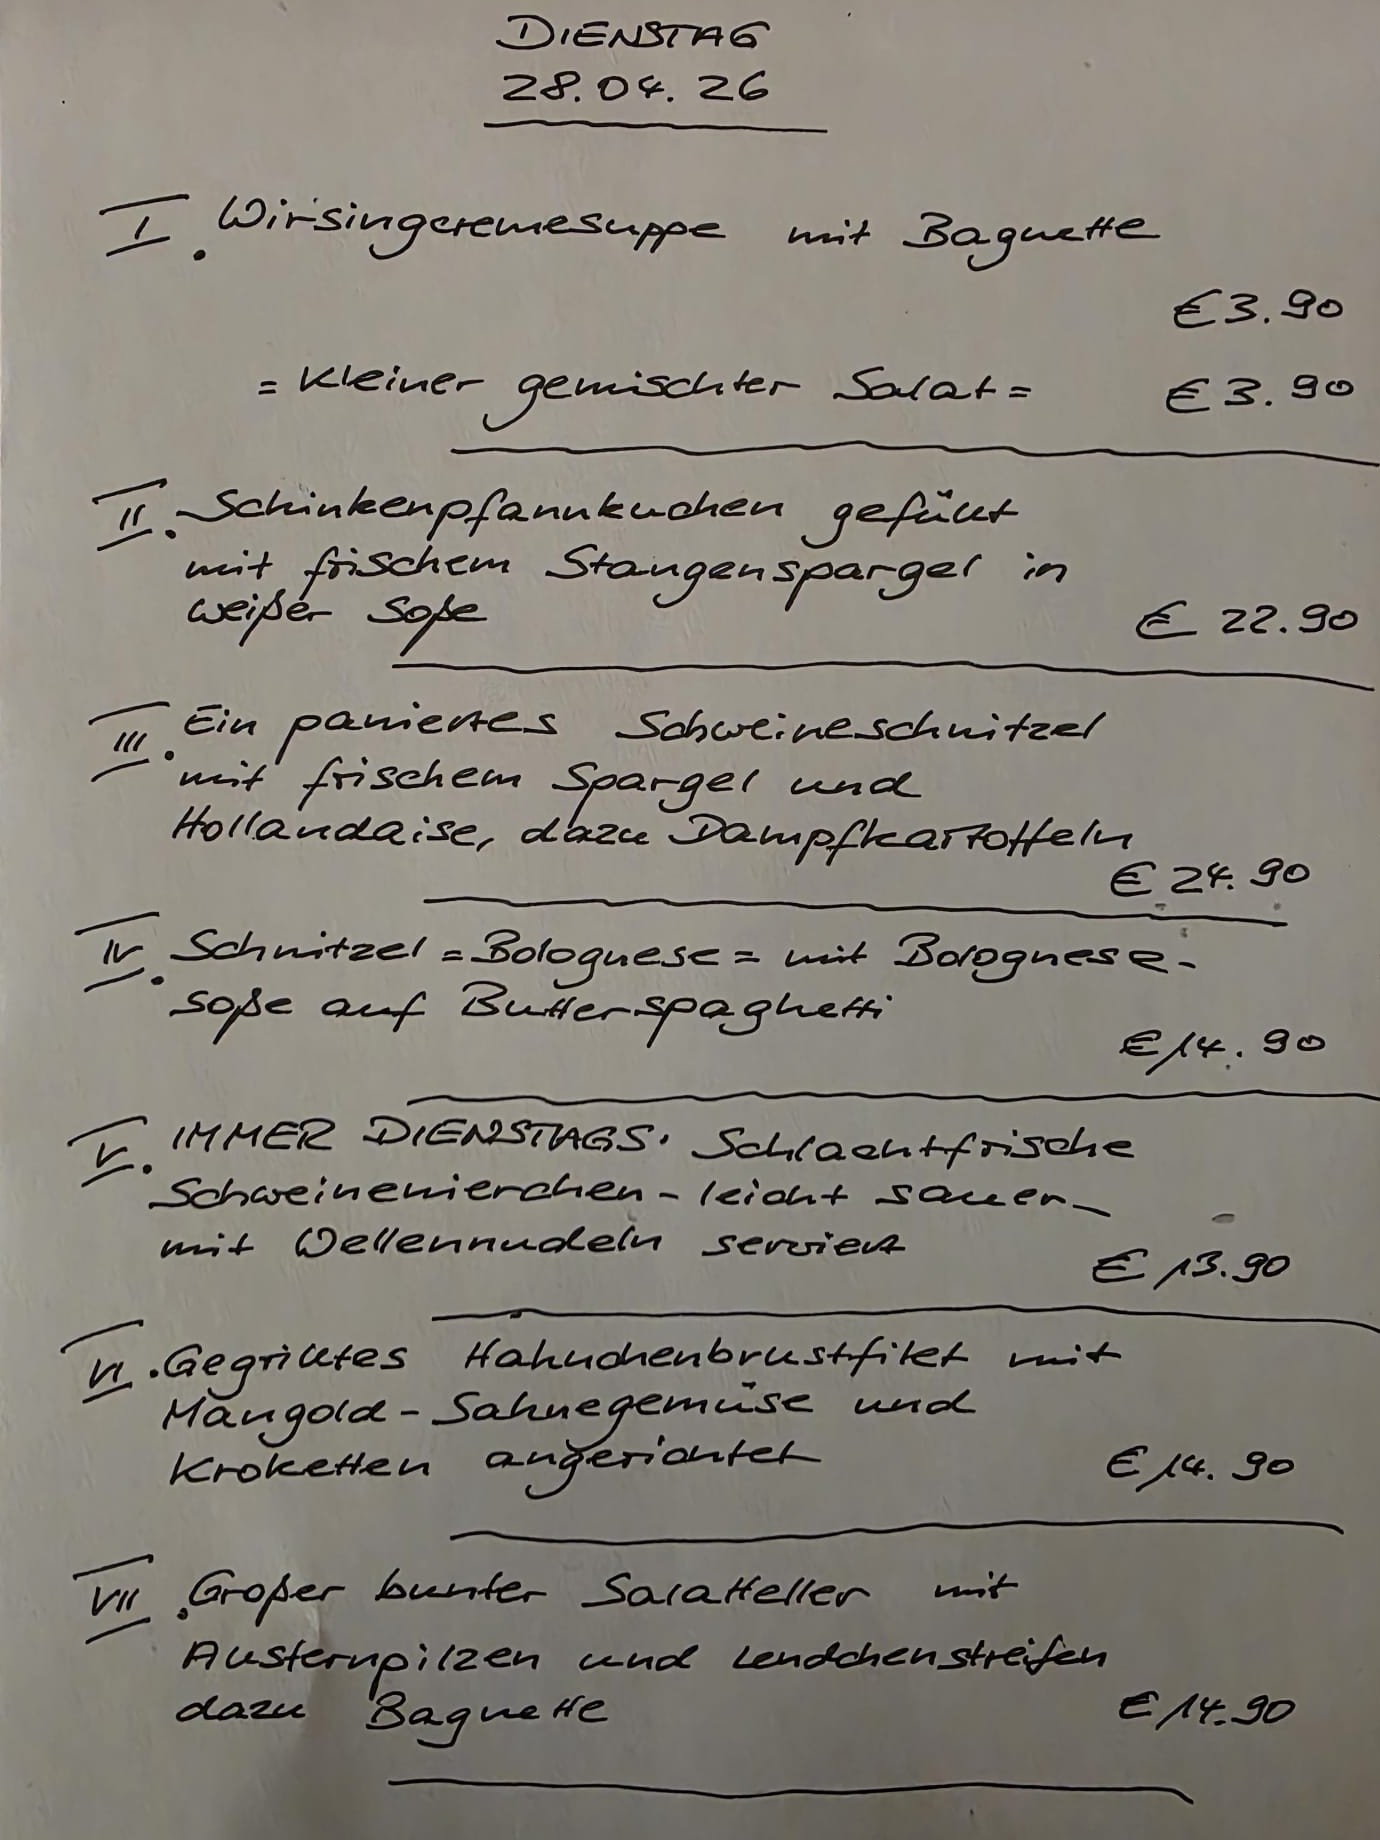 DIENSTAG
28.04.26
I. Wirsingcremesuppe mit Baguette
€ 3.90
= Kleiner gemischter Salat = € 3.90
II. Schinkenpfannkuchen gefüllt
mit frischem Stangenspargel in
weißer Soße € 22.90
III. Ein paniertes Schweineschnitzel
mit frischem Spargel und
Hollandaise, dazu Dampfkartoffeln
€ 24.90
IV. Schnitzel = Bolognese = mit Bolognese-
soße auf Butterspaghetti
€ 14.90
V. IMMER DIENSTAGS. Schlachtfrische
Schweinenierchen - leicht sauer -
mit Wellennudeln serviert
€ 13.90
VI. Gegrilltes Hähnchenbrustfilet mit
Mangold - Sahnegemüse und
Kroketten angerichtet € 14.90
VII. Großer bunter Salatteller mit
Austernpilzen und Lendchenstreifen
dazu Baguette € 14.90